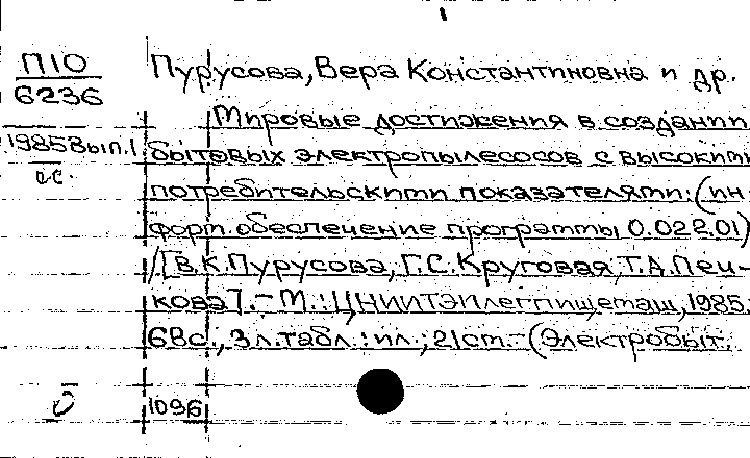 П10
6236
1985 Вып.1
о.с.
Пурусова, Вера Константиновна и др.
Мировые достижения в создании
бытовых электропылесосов с высокими
потребительскими показателями: (ин
форм. обеспечение программы 0.022.01)
/[В.К. Пурусова, Г.С. Круговая, Т.А. Пеш-
кова]. - М.: ЦНИИТЭИлегпищемаш, 1985.
68с., 3 л. табл.: ил.; 21см. - (Электробыт.
1096